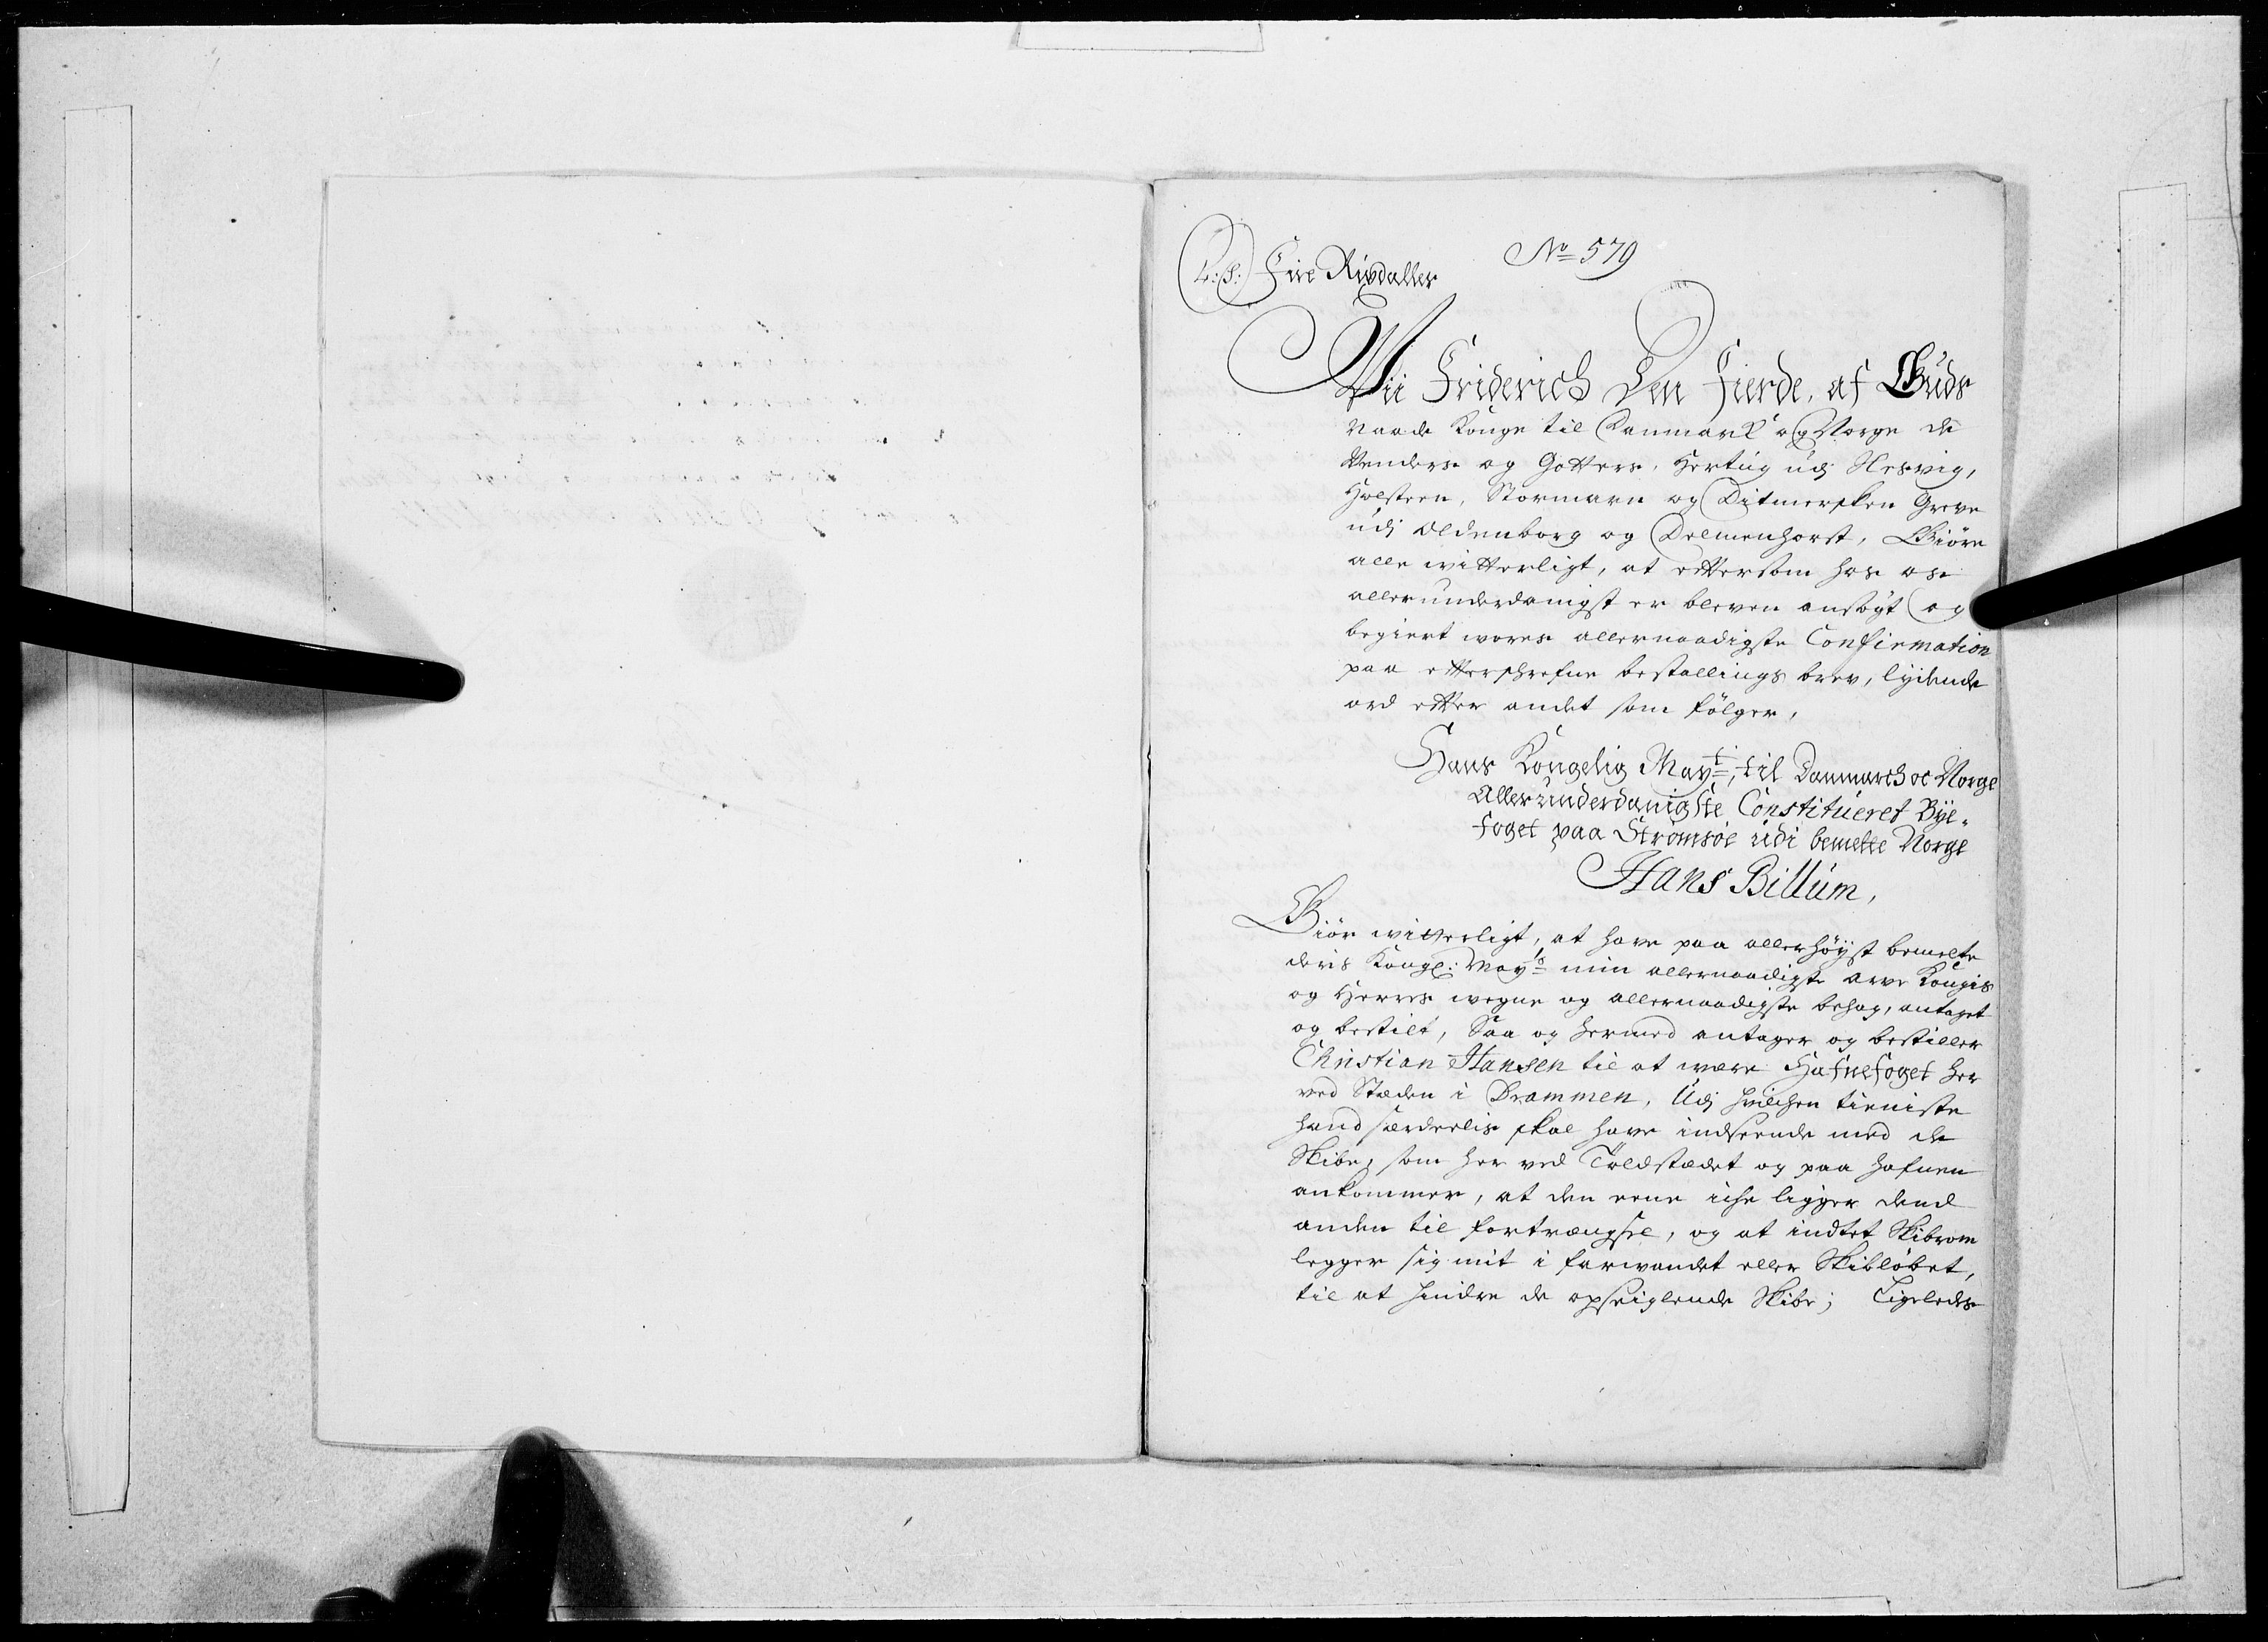 No 579
(L:S:) Fire Rixdaller
Wii Friderich Den Fierde, af Guds
Naade Konge til Danmark og Norge de
Venders og Gotters, Hertug udj Slesvig,
Holsteen, Stormarn og Ditmersken Greve
udj Oldenborg og Delmenhorst, Giöre
alle witterligt, at eftersom hos os
allerunderdanigst er bleven ansögt og
begiert wores allernaadigste Confirmation
paa efterschrefne bestallings brev, lydende
ord efter andet som fölger,
Hans Kongelig Mayt, til Danmarch oc Norge
Allerunderdanigste Constitueret Bye-
foget paa Strömsöe udi bemelte Norge
Hans Billum,
Giör witterligt, at have paa allerhöyst bemelte
deris Kongl: Mayts min allernaadigste arve Kongis
og Herres wegne og allernaadigste behag, antaget
og bestilt, Saa og hermed antager og bestiller
Christian Hansen til at være Hafnefoget her
ved Stæden i Drammen, Udj hvilchen tieniste
hand særdeelis skal have indseende med de
Skibe, som her ved Toldstædet og paa hafnen
ankommer, at den eene iche ligger dend
anden til fortrængsel, og at indtet Skibrom
legger sig mit i farvandet eller Skiblöbet,
til at hindre de opseiglende Skibe; Ligeledes